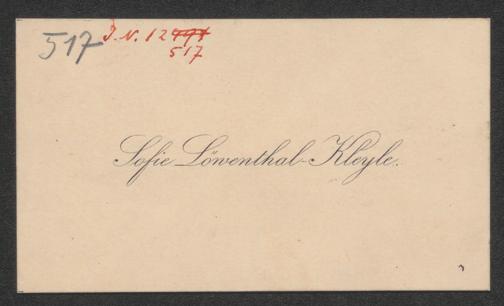 517 J. N. 12
517
Sofie Löwenthal-Kleyle.